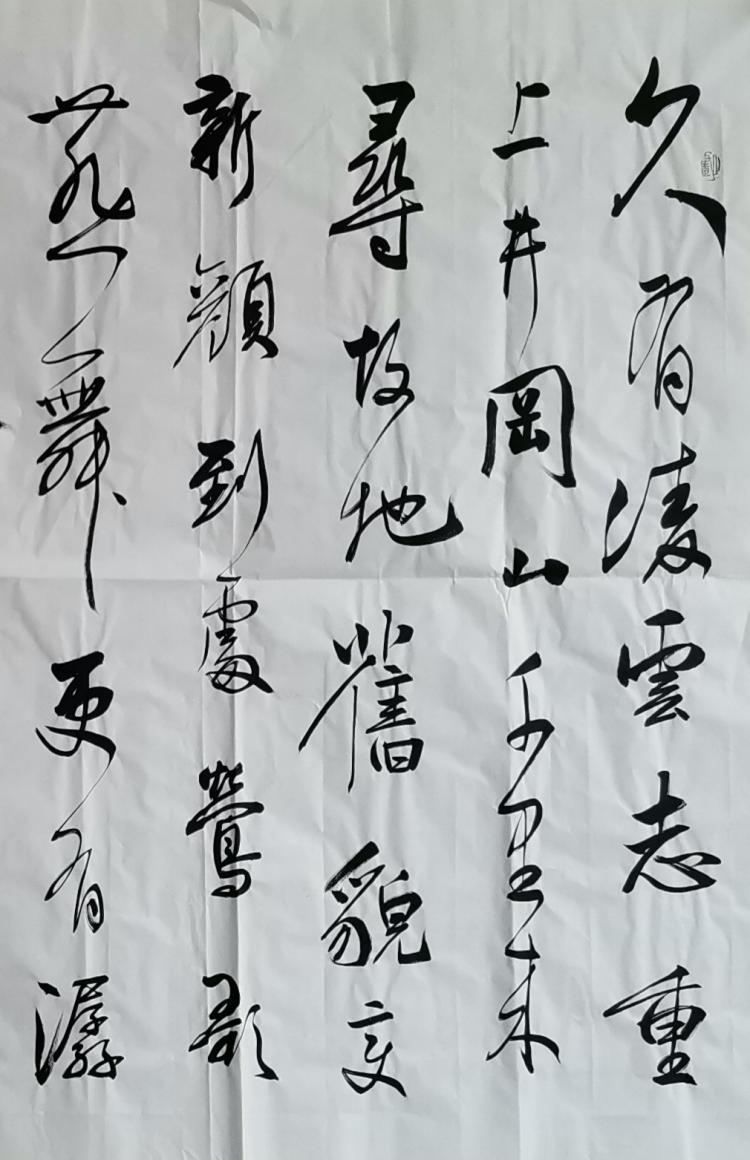 久有凌雲志重
上井岡山千里来
尋故地舊貌変
新顔到處鶯歌
燕舞更有潺